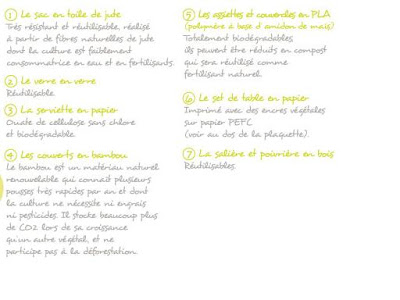 ① Le sac en toile de jute
Très résistant et réutilisable, réalisé
à partir de fibres naturelles de jute
dont la culture est faiblement
consommatrice en eau et en fertilisants.
② Le verre en verre
Réutilisable.
③ La serviette en papier
Ouate de cellulose sans chlore
et biodégradable.
④ Les couverts en bambou
Le bambou est un matériau naturel
renouvelable qui connait plusieurs
pousses très rapides par an et dont
la culture ne nécessite ni engrais
ni pesticides. Il stocke beaucoup plus
de CO2 lors de sa croissance
qu'un autre végétal, et ne
participe pas à la déforestation.
⑤ Les assiettes et couvercles en PLA
(polymère à base d'amidon de maïs)
Totalement biodégradables
ils peuvent être réduits en compost
qui sera réutilisé comme
fertilisant naturel.
⑥ Le set de table en papier
Imprimé avec des encres végétales
sur papier PEFC
(voir au dos de la plaquette).
⑦ La salière et poivrière en bois
Réutilisables.